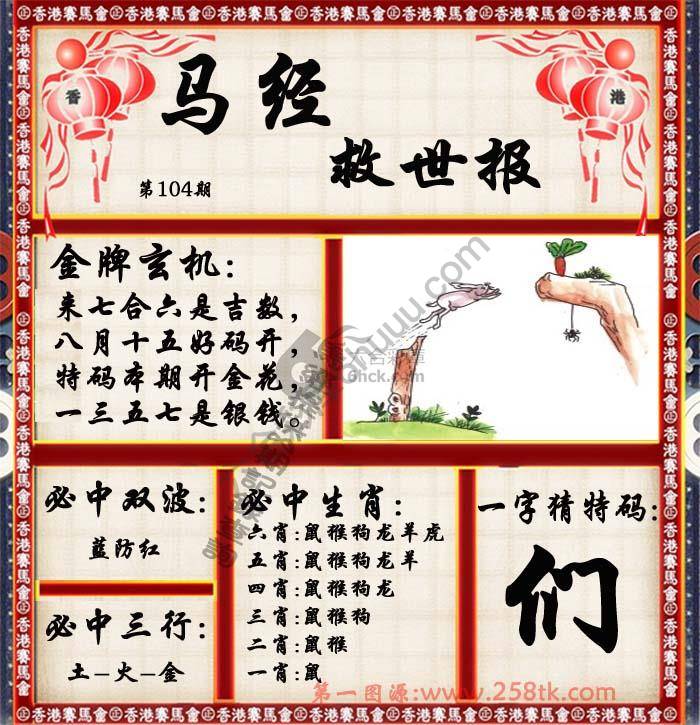 香港賽馬會
香
港
马经
救世报
第104期
金牌玄机:
来七合六是吉数，
八月十五好码开，
特码本期开金花，
一三五七是银钱。
必中双波:
蓝防红
必中三行:
土-火-金
必中生肖:
六肖:鼠猴狗龙羊虎
五肖:鼠猴狗龙羊
四肖:鼠猴狗龙
三肖:鼠猴狗
二肖:鼠猴
一肖:鼠
一字猜特码:
们
第一图源:www.258tk.com